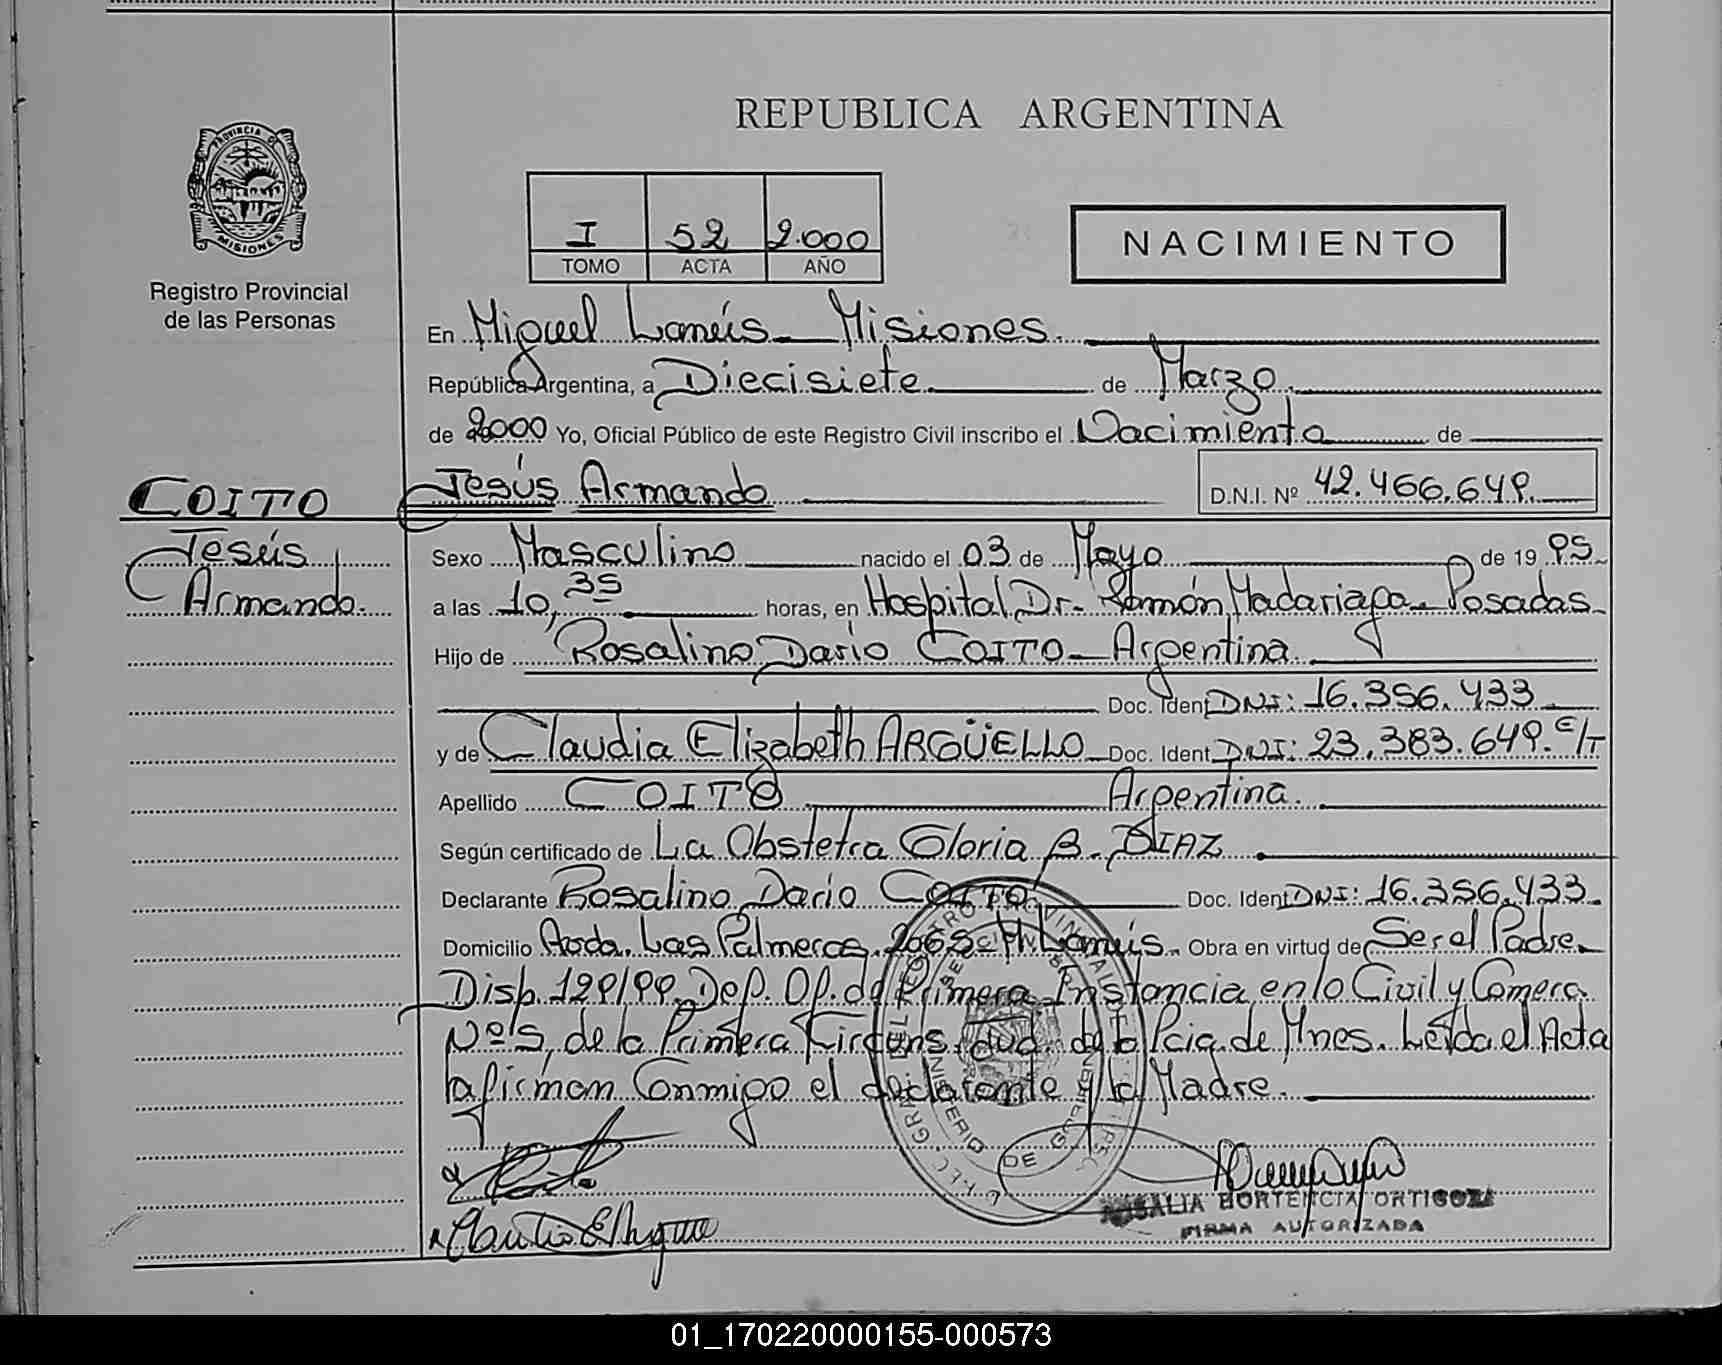 REPUBLICA ARGENTINA
PROVINCIA DE
MISIONES
Registro Provincial
de las Personas
I 52 2.000
TOMO ACTA AÑO
NACIMIENTO
En Miguel Lanús - Misiones.
República Argentina, a Diecisiete de Marzo
de 2000 Yo, Oficial Público de este Registro Civil inscribo el Nacimiento de
Jesús Armando D.N.I. Nº 42.466.649.
COITO
Jesús
Armando.
Sexo Masculino nacido el 03 de Mayo de 19 95
a las 10,35 horas, en Hospital Dr. Ramón Madariaga - Posadas
Hijo de Rosalino Dario COITO - Argentina
Doc. Ident DNI: 16.356.433
y de Claudia Elizabeth ARGÜELLO Doc. Ident DNI: 23.383.649. E/T
Apellido COITO Argentina.
Según certificado de La Obstetra Gloria B. DIAZ
Declarante Rosalino Dario COITO Doc. Ident DNI: 16.356.433
Domicilio Avda. Las Palmeras 2068 - M. Lanús. Obra en virtud de Ser el Padre
Disp. 129/99 Def. Of. de Primera Instancia en lo Civil y Comerc.
Nº 5, de la Primera Circuns. Jud. de la Pcia. de Mnes. Leída el Acta
la firman Conmigo el declarante y la Madre.
ROSALIA HORTENCIA ORTIGOZA
FIRMA AUTORIZADA
01_170220000155-000573